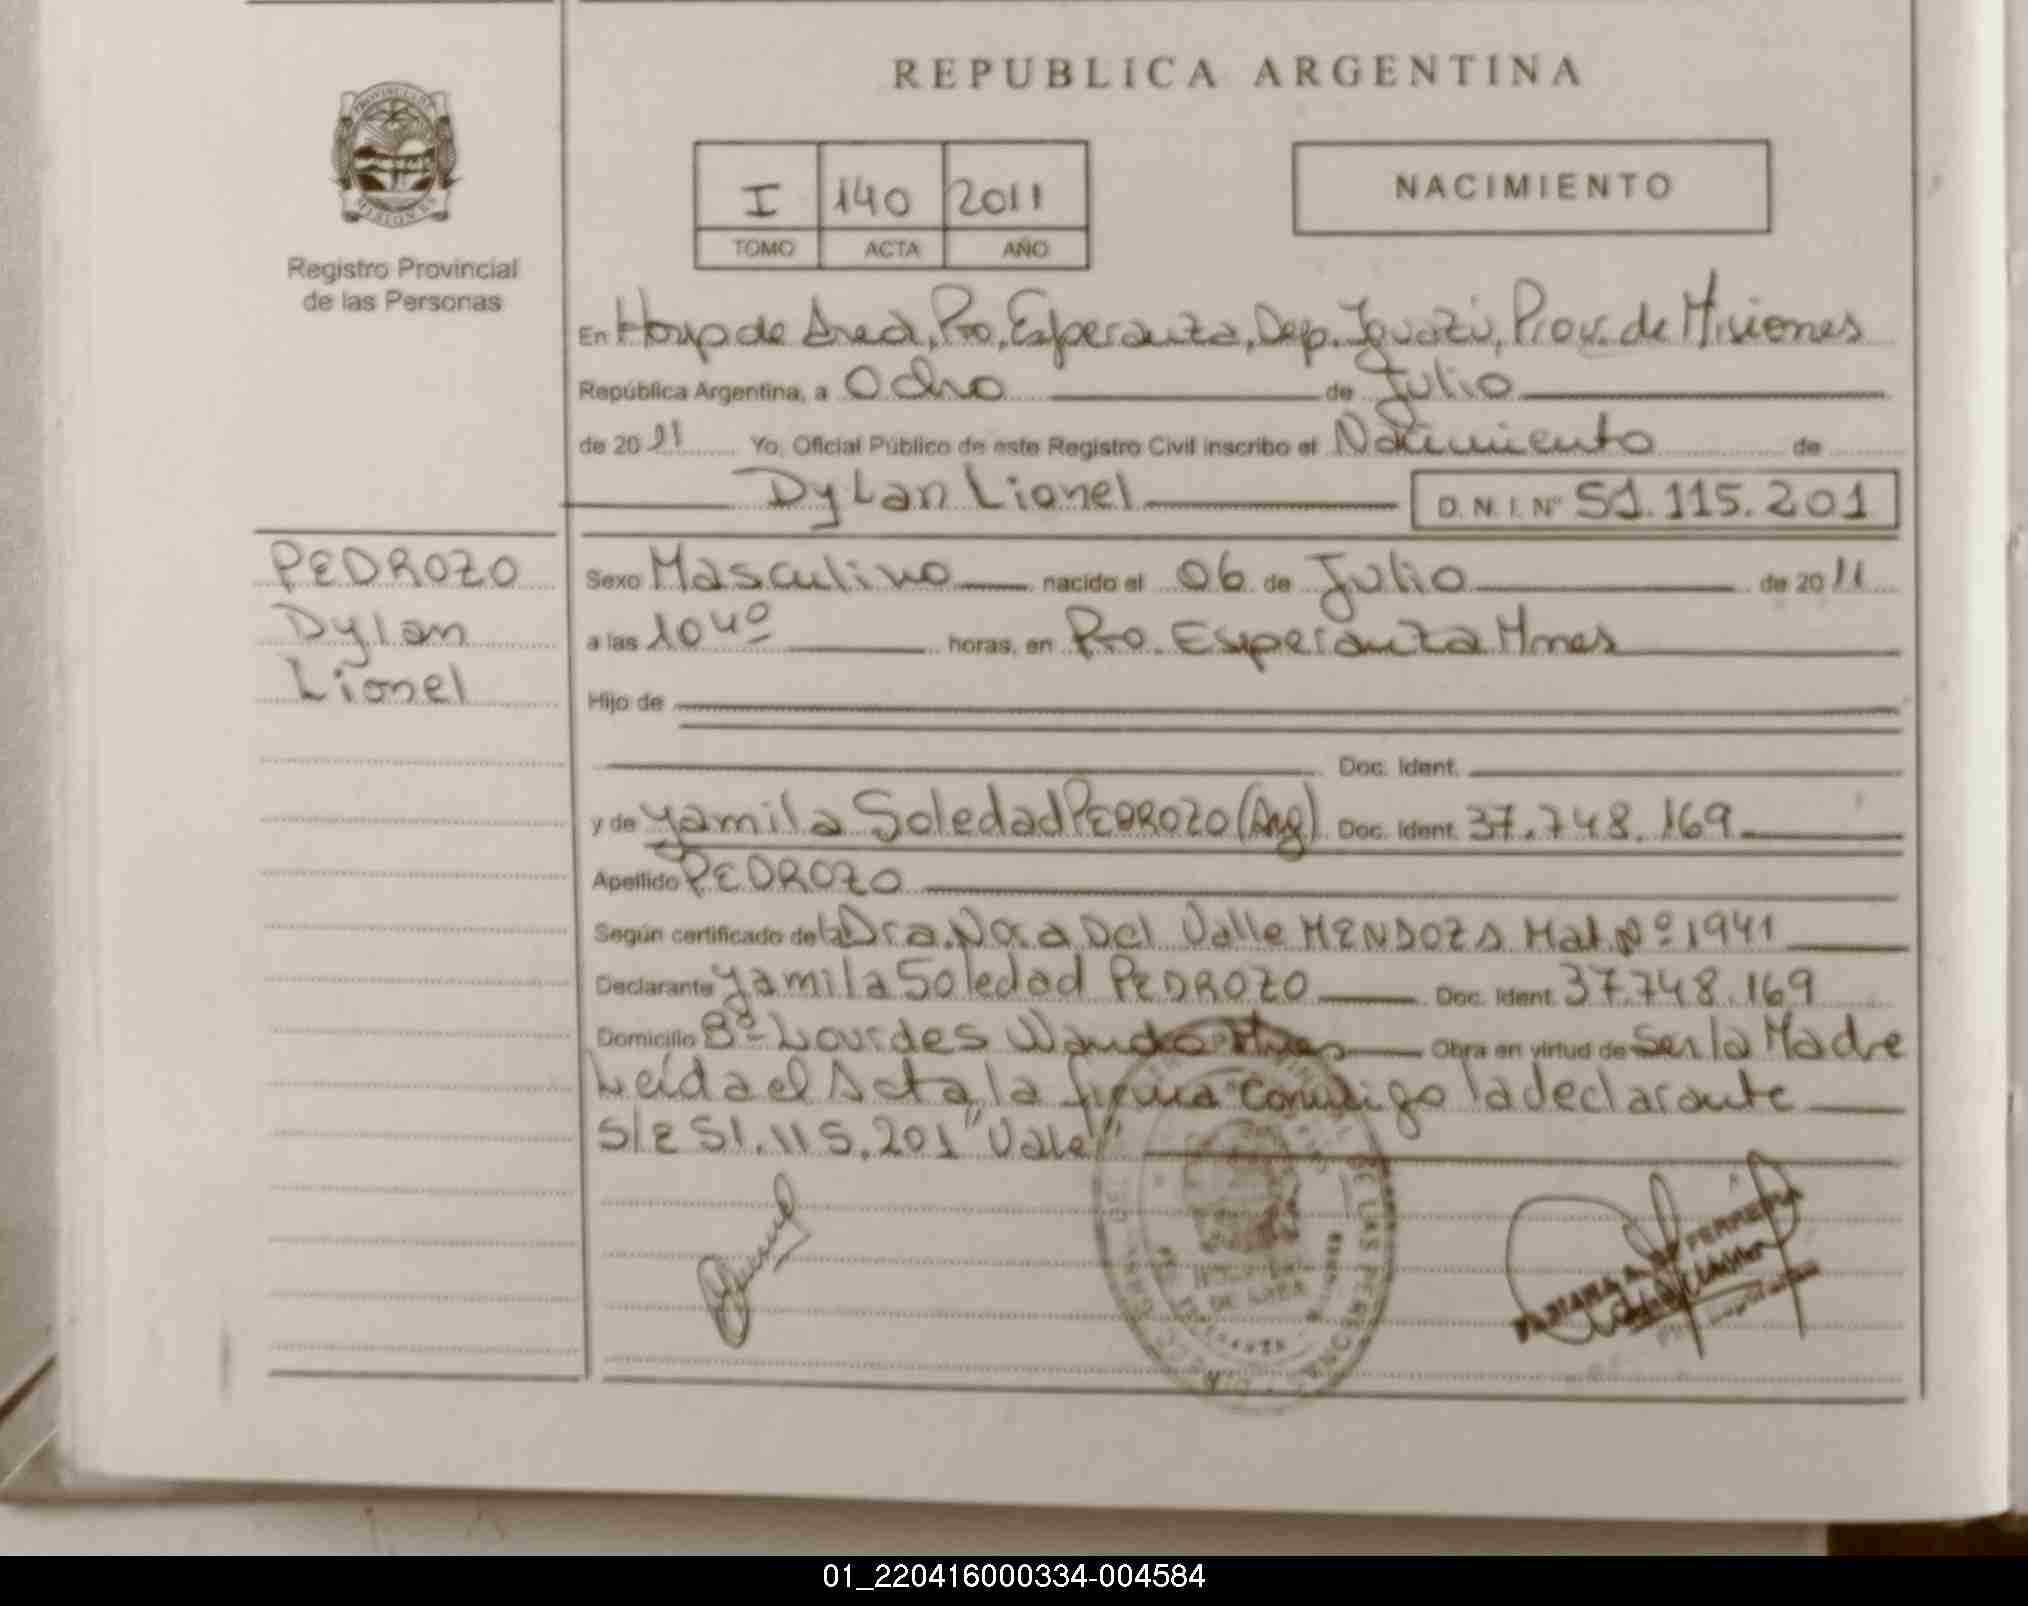 REPUBLICA ARGENTINA
PROVINCIA DE MISIONES
Registro Provincial
de las Personas
I 140 2011
TOMO ACTA AÑO
NACIMIENTO
En Hosp de Area, Pto, Esperanza, Dep. Iguazú, Prov. de Misiones
República Argentina, a Ocho de Julio
de 2011 Yo, Oficial Público de este Registro Civil inscribo el Nacimiento de
Dylan Lionel D. N. I. Nº 51.115.201
PEDROZO
Dylan
Lionel
Sexo Masculino nacido el 06 de Julio de 2011
a las 10 4º horas, en Pto. Esperanza Mnes
Hijo de
Doc. Ident.
y de Yamila Soledad PEDROZO (Arg) Doc. Ident. 37.748.169
Apellido PEDROZO
Según certificado de la Dra. Nora Del Valle MENDOZA Mat. Nº 1941
Declarante Yamila Soledad PEDROZO Doc. Ident. 37.748.169
Domicilio Bº Lourdes Wanda Mnes Obra en virtud de Ser la Madre
Leída el Acta, la firma conmigo la declarante
S/E 51.115.201 "Vale"
DE LAS PERSONAS
FERREIRA
01_220416000334-004584